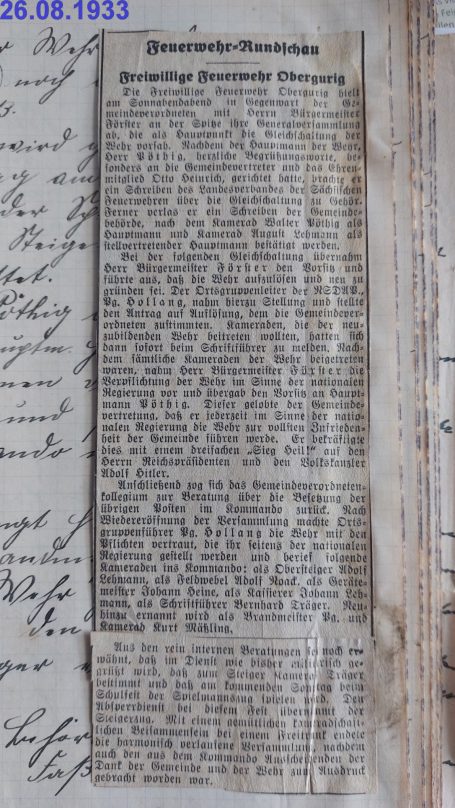 26.08.1933
Feuerwehr-Rundschau
Freiwillige Feuerwehr Obergurig
Die Freiwillige Feuerwehr Obergurig hielt
am Sonnabendabend in Gegenwart der Ge-
meindeverordneten mit Herrn Bürgermeister
Förster an der Spitze ihre Generalversammlung
ab, die als Hauptpunkt die Gleichschaltung der
Wehr vorsah. Nachdem der Hauptmann der Wehr,
Herr Pöthig, herzliche Begrüßungsworte, be-
sonders an die Gemeindevertreter und das Ehren-
mitglied Otto Heinrich, gerichtet hatte, brachte er
ein Schreiben des Landesverbandes der Sächsischen
Feuerwehren über die Gleichschaltung zu Gehör.
Ferner verlas er ein Schreiben der Gemeinde-
behörde, nach dem Kamerad Walter Pöthig als
Hauptmann und Kamerad August Lehmann als
stellvertretender Hauptmann bestätigt werden.
Bei der folgenden Gleichschaltung übernahm
Herr Bürgermeister Förster den Vorsitz und
führte aus, daß die Wehr aufzulösen und neu zu
gründen sei. Der Ortsgruppenleiter der NSDAP.,
Pg. Hollang, nahm hierzu Stellung und stellte
den Antrag auf Auflösung, dem die Gemeindever-
ordneten zustimmten. Kameraden, die der neu-
zubildenden Wehr beitreten wollten, hatten sich
dann sofort beim Schriftführer zu melden. Nach-
dem sämtliche Kameraden der Wehr beigetreten
waren, nahm Herr Bürgermeister Förster die
Verpflichtung der Wehr im Sinne der nationalen
Regierung vor und übergab den Vorsitz an Haupt-
mann Pöthig. Dieser gelobte der Gemeinde-
vertretung, daß er jederzeit im Sinne der natio-
nalen Regierung die Wehr zur vollsten Zufrieden-
heit der Gemeinde führen werde. Er bekräftigte
dies mit einem dreifachen „Sieg Heil!" auf den
Herrn Reichspräsidenten und den Volkskanzler
Adolf Hitler.
Anschließend zog sich das Gemeindeverordneten-
kollegium zur Beratung über die Besetzung der
übrigen Posten im Kommando zurück. Nach
Wiedereröffnung der Versammlung machte Orts-
gruppenführer Pg. Hollang die Wehr mit den
Pflichten vertraut, die ihr seitens der nationalen
Regierung gestellt werden und berief folgende
Kameraden ins Kommando: als Obersteiger Adolf
Lehmann, als Feldwebel Adolf Noack, als Geräte-
meister Johann Heine, als Kassierer Johann Leh-
mann, als Schriftführer Bernhard Träger. Neu
hinzu ernannt wird als Brandmeister Pg. und
Kamerad Kurt Mäßling.
Aus den rein internen Beratungen sei noch er-
wähnt, daß im Dienst wie bisher militärisch ge-
grüßt wird, daß zum Steiger Kamerad Träger
bestimmt und daß am kommenden Sonntag beim
Schulfest der Spielmannszug spielen wird. Den
Absperrdienst bei diesem Fest übernimmt der
Steigerzug. Mit einem gemütlichen kameradschaft-
lichen Beisammensein bei einem Freitrunk endete
die harmonisch verlaufene Versammlung, nachdem
auch den aus dem Kommando Ausscheidenden der
Dank der Gemeinde und der Wehr zum Ausdruck
gebracht worden war.